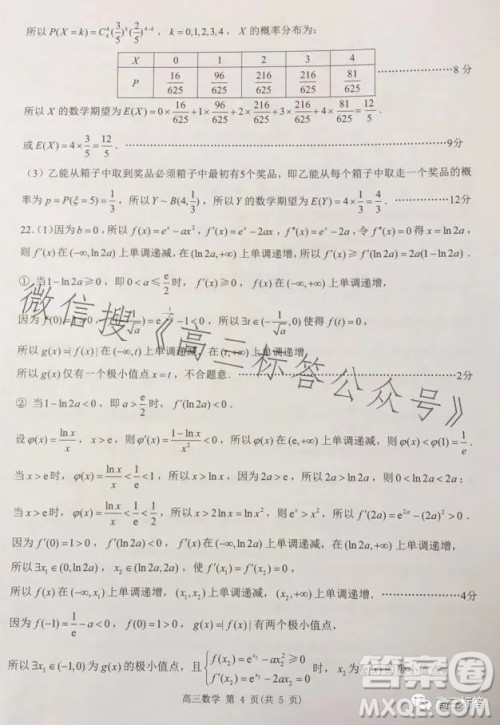 所以 P(X = k) = C₄ᵏ(3/5)ᵏ(2/5)⁴⁻ᵏ，k = 0,1,2,3,4，X 的概率分布为：
X 0 1 2 3 4
P 16/625 96/625 216/625 216/625 81/625 ⋯⋯⋯⋯ 8 分
所以 X 的数学期望为 E(X) = 0×16/625+1×96/625+2×216/625+3×216/625+4×81/625=12/5．
或 E(X) = 4×3/5=12/5．⋯⋯⋯⋯ 9分
（3）乙能从箱子中取到奖品必须箱子中最初有5个奖品，即乙能从每个箱子中取走一个奖品的概
率为 p = P(ξ = 5) = 1/3，所以 Y ~ B(4, 1/3)，所以 Y 的数学期望为 E(Y) = 4×1/3=4/3．⋯⋯⋯⋯ 12分
22.（1）因为 b = 0，所以 f(x) = eˣ − ax²，f′(x) = eˣ − 2ax，f″(x) = eˣ − 2a，令 f″(x) 0得 x = ln 2a，
则 f′(x) 在 (−∞, ln 2a) 上单调递减，在 (ln 2a, +∞) 上单调递增，所以 f′(x) ≥ f′(ln 2a) = 2a(1 − ln 2a)．
① 当 1 − ln 2a ≥ 0，即 0 < a ≤ e/2 时，f′(x) ≥ 0，所以 f(x) 在 (−∞, +∞) 上单调递增，
因为 f(0) = 1 > 0， − 1 < 0，所以 ∃t ∈ (−1/√a, 0)使得 f(t) = 0，
所以 g(x) =| f(x) | 在 (−∞, t) 上单调递减，在 (t, +∞) 上单调递增，
所以 g(x) 仅有一个极小值点 x = t，不合题意．⋯⋯⋯⋯ 2分
② 当 1 − ln 2a < 0，即 a > e/2 时，f′(ln 2a) < 0，
设 φ(x) = ln x/x，x > e，则 φ′(x) = (1 − ln x)/x² < 0，所以 φ(x) 在 (e, +∞) 上单调递减，则 φ(x) < φ(e) = 1/e，
当 x > e 时，φ(x) = ln x/x < 1/e < 1，所以 x > ln x，因为 2a > e，所以 ln 2a < 2a；
当 x > e 时，φ(x) = ln x/x < 1/e < 1/2，所以 x > 2ln x = ln x²，则 eˣ > x²，所以 f′(2a) = e²ᵃ − (2a)² > 0．
因为 f′(0) = 1 > 0，f′(ln 2a) < 0，f′(x) 在 (−∞, ln 2a) 上单调递减，在 (ln 2a, +∞) 上单调递增，
所以 ∃x₁ ∈ (0, ln 2a)，x₂ ∈ (ln 2a, 2a)，使 f′(x₁) = f′(x₂) = 0，
所以 f(x) 在 (−∞, x₁) 上单调递增，在 (x₁, x₂) 上单调递减，在 (x₂, +∞) 上单调递增．⋯⋯⋯⋯ 4分
因为 f(−1) = 1/e − a < 0，f(0) > 0，g(x) =| f(x) | 有两个极小值点，
所以 ∃x₃ ∈ (−1, 0) 为 g(x) 的极小值点，且
高三数学 第 4 页(共 5 页)
微信搜《高三标答公众号》
答案圈
MXQE.COM